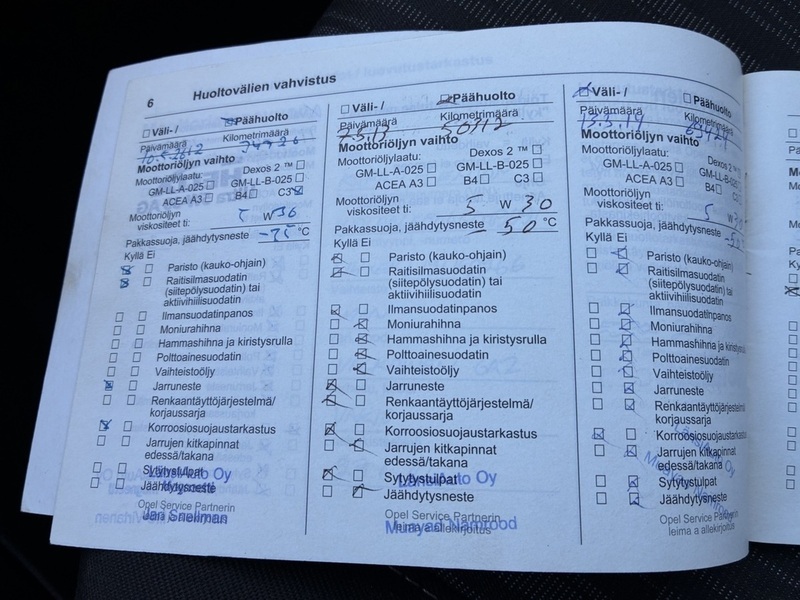 6 Huoltovälien vahvistus
Väli- / Päähuolto
Päivämäärä Kilometrimäärä
Moottoriöljyn vaihto
Moottoriöljylaatu: Dexos 2 ™
GM-LL-A-025 GM-LL-B-025
ACEA A3 B4 C3
Moottoriöljyn
viskositeetti: W
Pakkassuoja, jäähdytysneste °C
Kyllä Ei
Paristo (kauko-ohjain)
Raitisilmasuodatin
(siitepölysuodatin) tai
aktiivihiilisuodatin
Ilmansuodatinpanos
Moniurahihna
Hammashihna ja kiristysrulla
Polttoainesuodatin
Vaihteistoöljy
Jarruneste
Renkaantäyttöjärjestelmä/
korjaussarja
Korroosiosuojaustarkastus
Jarrujen kitkapinnat
edessä/takana
Sytytystulpat
Jäähdytysneste
Opel Service Partnerin
Jan Snellman
Väli- / Päähuolto
Päivämäärä Kilometrimäärä
Moottoriöljyn vaihto
Moottoriöljylaatu: Dexos 2 ™
GM-LL-A-025 GM-LL-B-025
ACEA A3 B4 C3
Moottoriöljyn
viskositeetti: 5 W 30
Pakkassuoja, jäähdytysneste -50 °C
Kyllä Ei
Paristo (kauko-ohjain)
Raitisilmasuodatin
(siitepölysuodatin) tai
aktiivihiilisuodatin
Ilmansuodatinpanos
Moniurahihna
Hammashihna ja kiristysrulla
Polttoainesuodatin
Vaihteistoöljy
Jarruneste
Renkaantäyttöjärjestelmä/
korjaussarja
Korroosiosuojaustarkastus
Jarrujen kitkapinnat
edessä/takana
Sytytystulpat
Jäähdytysneste
Opel Service Partnerin
leima a allekirjoitus
Muayad Namrood
Väli- / Päähuolto
Päivämäärä Kilometrimäärä
13.5.14
Moottoriöljyn vaihto
Moottoriöljylaatu: Dexos 2 ™
GM-LL-A-025 GM-LL-B-025
ACEA A3 B4 C3
Moottoriöljyn
viskositeetti: 5 W
Pakkassuoja, jäähdytysneste
Kyllä Ei
Paristo (kauko-ohjain)
Raitisilmasuodatin
(siitepölysuodatin) tai
aktiivihiilisuodatin
Ilmansuodatinpanos
Moniurahihna
Hammashihna ja kiristysrulla
Polttoainesuodatin
Vaihteistoöljy
Jarruneste
Renkaantäyttöjärjestelmä
korjaussarja
Korroosiosuojaustarkastus
Jarrujen kitkapinnat
edessä/takana
Sytytystulpat
Jäähdytysneste
Opel Service Partnerin
leima a allekirjoitus